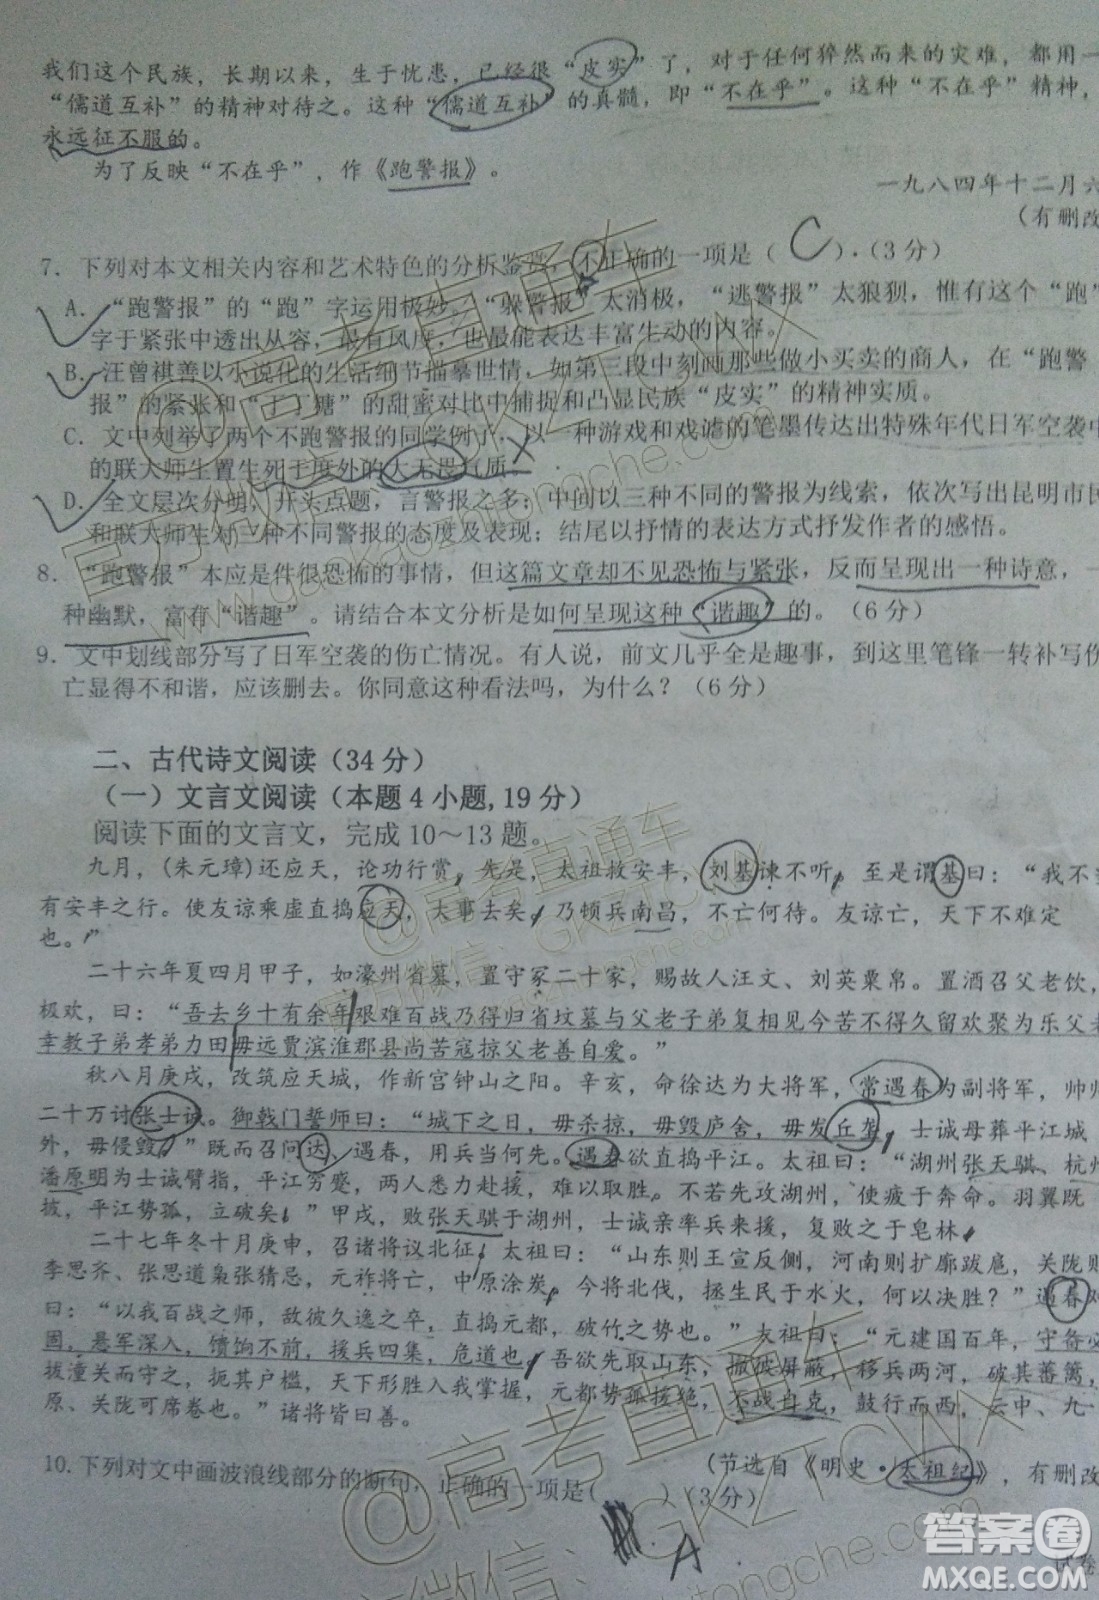 我们这个民族，长期以来，生于忧患，已经很“皮实”了，对于任何猝然而来的灾难，都用一
“儒道互补”的精神对待之。这种“儒道互补”的真髓，即“不在乎”。这种“不在乎”精神，
永远征不服的。
为了反映“不在乎”，作《跑警报》。
一九八四年十二月六
（有删改
7．下列对本文相关内容和艺术特色的分析鉴赏，不正确的一项是（ C ）.（3分）
A．“跑警报”的“跑”字运用极妙。“躲警报”太消极，“逃警报”太狼狈，惟有这个“跑”
字于紧张中透出从容，最有风度，也最能表达丰富生动的内容。
B．汪曾祺善以小说化的生活细节描摹世情，如第三段中刻画那些做小买卖的商人，在“跑警
报”的紧张和“丁丁糖”的甜蜜对比中捕捉和凸显民族“皮实”的精神实质。
C．文中列举了两个不跑警报的同学例子，以一种游戏和戏谑的笔墨传达出特殊年代日军空袭中
的联大师生置生死于度外的大无畏气质。
D．全文层次分明，开头点题，言警报之多；中间以三种不同的警报为线索，依次写出昆明市民
和联大师生对三种不同警报的态度及表现；结尾以抒情的表达方式抒发作者的感悟。
8．“跑警报”本应是件很恐怖的事情，但这篇文章却不见恐怖与紧张，反而呈现出一种诗意，一
种幽默，富有“谐趣”。请结合本文分析是如何呈现这种“谐趣”的。（6分）
9．文中划线部分写了日军空袭的伤亡情况。有人说，前文几乎全是趣事，到这里笔锋一转补写伤
亡显得不和谐，应该删去。你同意这种看法吗，为什么？（6分）
二、古代诗文阅读（34分）
（一）文言文阅读（本题4小题,19分）
阅读下面的文言文，完成10～13题。
九月，(朱元璋)还应天，论功行赏，先是，太祖救安丰，刘基谏不听，至是谓基曰：“我不
有安丰之行。使友谅乘虚直捣应天，大事去矣，乃顿兵南昌，不亡何待。友谅亡，天下不难定
也。”
二十六年夏四月甲子，如濠州省墓，置守冢二十家，赐故人汪文、刘英粟帛。置酒召父老饮，
极欢，曰：“吾去乡十有余年艰难百战乃得归省坟墓与父老子弟复相见今苦不得久留欢聚为乐父老
幸教子弟孝弟力田毋远贾滨淮郡县尚苦寇掠父老善自爱。”
秋八月庚戌，改筑应天城，作新宫钟山之阳。辛亥，命徐达为大将军，常遇春为副将军，帅师
二十万讨张士诚。御戟门誓师曰：“城下之日，毋杀掠，毋毁庐舍，毋发丘垄，士诚母葬平江城
外，毋侵毁。”既而召问达、遇春，用兵当何先。遇春欲直捣平江。太祖曰：“湖州张天骐、杭州
潘原明为士诚臂指，平江穷蹙，两人悉力赴援，难以取胜。不若先攻湖州，使疲于奔命。羽翼既
披，平江势孤，立破矣。”甲戌，败张天骐于湖州，士诚亲率兵来援，复败之于皂林。
二十七年冬十月庚申，召诸将议北征，太祖曰：“山东则王宣反侧，河南则扩廓跋扈，关陇则
李思齐、张思道枭张猜忌，元祚将亡，中原涂炭。今将北伐，拯生民于水火，何以决胜？”遇春对
曰：“以我百战之师，敌彼久逸之卒，直捣元都，破竹之势也。”太祖曰：“元建国百年，守备必
固，悬军深入，馈饷不前，援兵四集，危道也。吾欲先取山东，撤彼屏蔽，移兵两河，破其藩篱，
拔潼关而守之，扼其户槛，天下形胜入我掌握，元都势孤援绝，不战自克，鼓行而西，云中、九
原、关陇可席卷也。”诸将皆曰善。
（节选自《明史·太祖纪》，有删改
10.下列对文中画波浪线部分的断句，正确的一项是（ ）（3分）
A
试卷
答案圈
MXQE.COM